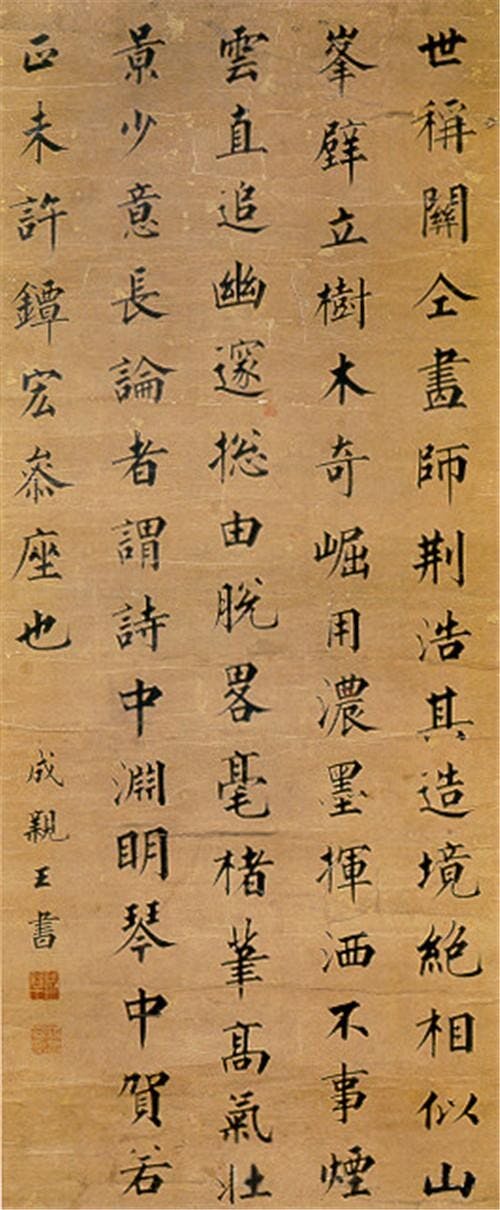 世稱關仝畫師荆浩其造境絶相似山
峯壁立樹木奇崛用濃墨揮洒不事煙
雲直追幽邃捴由脱畧毫楮茟髙氣壯
景少意長論者謂詩中淵明琴中賀若
正未許鐔宏叅座也
成親王書